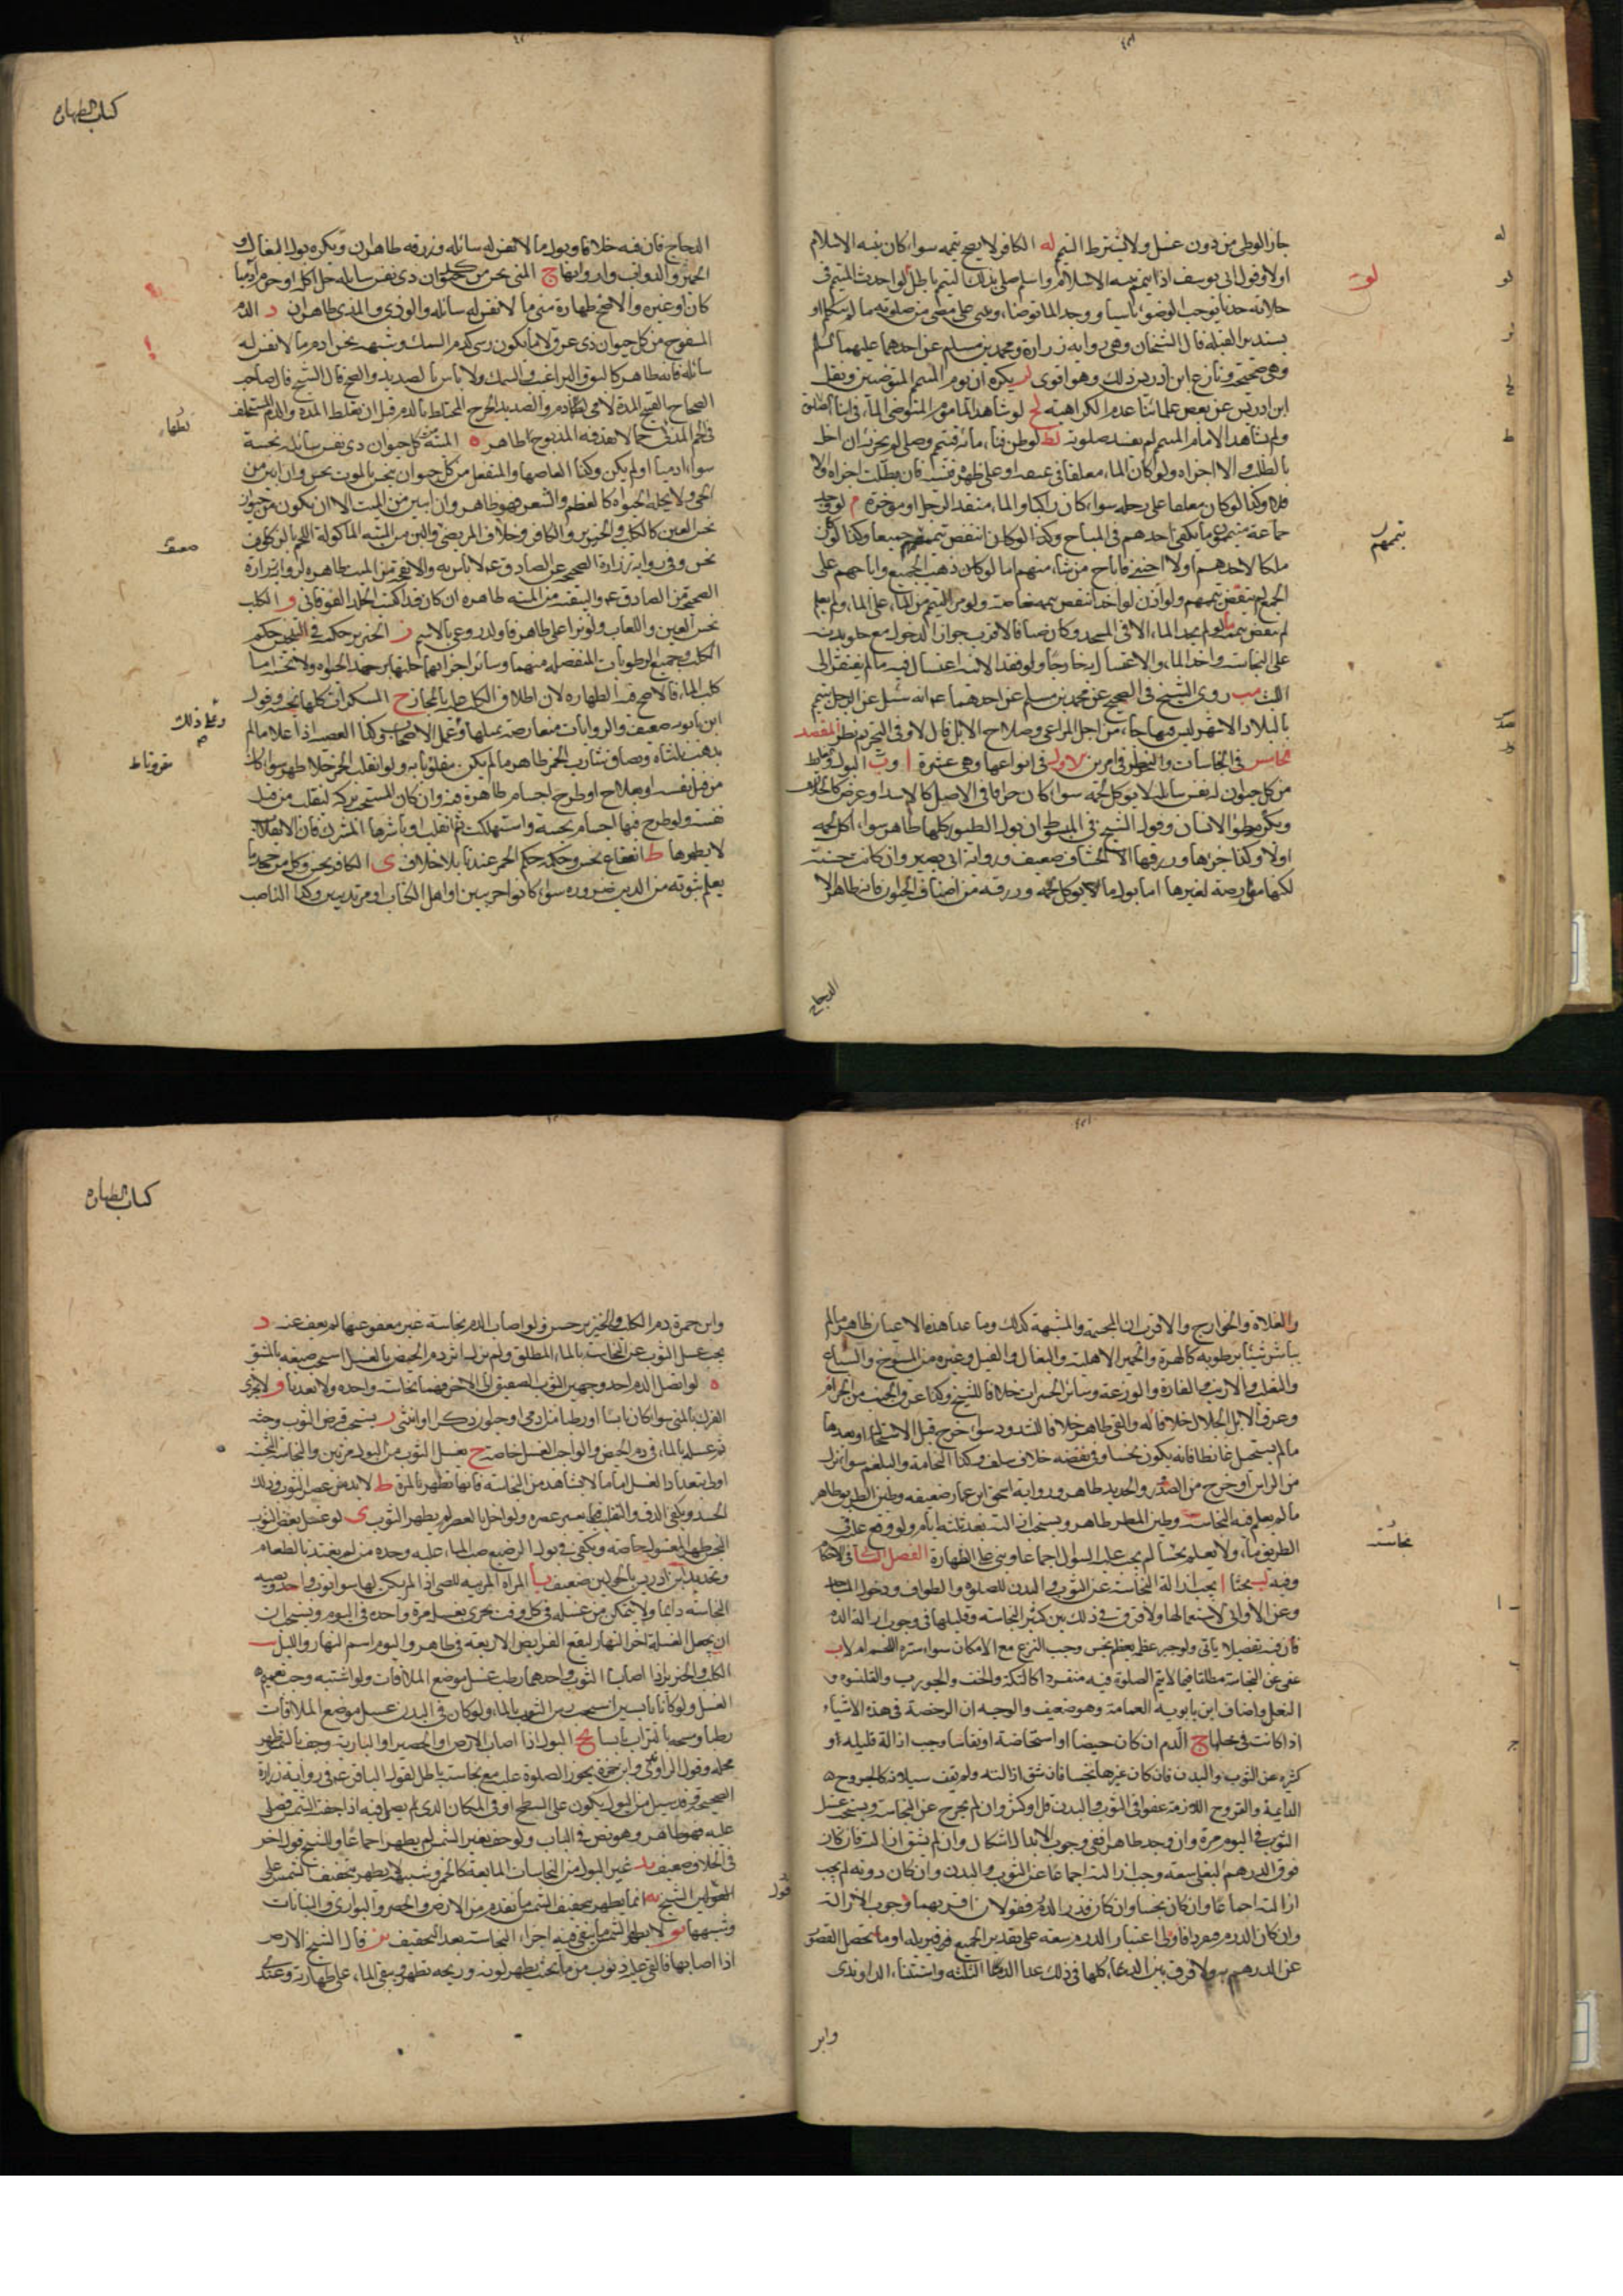 جاز الوطى من دون غسل ولا يشترط التيمم له الكافر لا يصح تيممه سواء كان بنية الاسلام
اولا وقول ابى يوسف اذا تيمم بنية الاسلام ثم واسلم صلى بذلك التيمم باطل لو احدث المتيمم فى
صلاته حدثا يوجب الوضوء ناسيا ووجد الماء توضأ وبنى على ما مضى من صلوته ما لم يتكلم او
يستدبر القبلة قال الشيخان وهى رواية زرارة ومحمد بن مسلم عن احدهما عليهما السلم
وهى صحيحة ونازع ابن ادريس فى ذلك وهو اقوى لز يكره ان يؤم المتيمم المتوضئين ونقل
ابن ادريس عن بعض علمائنا عدم الكراهية لح لو شاهد المأموم المتوضى الماء فى اثناء الصلوة
ولم يشاهد الامام المتيمم لم يفسد صلوته لط لو ظن فناء مائه فتيمم وصلى لم يجزئه ان اخل
بالطلب والا اجزاه ولو كان الماء معلقا فى عنقه او على ظهره فنسيه فان طلب اجزاه والا
فلا وكذا لو كان معلقا على رحله سواء كان راكبا والماء متقدم الرحل او مؤخره م لو وجد
جماعة متيممون ما يكفى احدهم فى المباح وكذا لو كان انتقض تيممهم جميعا وكذا لو كان
ملكا لاحدهم اولا اجنبى فاباح من شاء منهم اما لو كان ذهب الجميع واباحهم على
الجمع لم ينتقض تيممهم ولو اذن لواحد انتقض تيممه خاصة ولو مر المتيمم على الماء ولم يعلم
لم ينقض تيممه ما لو لم يجد الماء الا فى المسجد وكان جنبا فالاقرب جواز الدخول مع خلو بدنه
على النجاسة واخذ الماء والاغتسال خارجا ولو فقد الانية اغتسل فيه ما لم يفتقر الى
اللبث مب روى الشيخ فى الصحيح عن محمد بن مسلم عن احدهما ع انه سئل عن الرجل يقيم
بالبلاد الاشهر ليس فيها ماء من اجل المراعى وصلاح الابل قال لا وفى التحريم نظر المقصد
الخامس فى النجاسات والنظر فى امرين الاول فى انواعها وهى عشرة ا وب البول والغائط
من كل حيوان له نفس سائلة لا يؤكل لحمه سواء كان حراما فى الاصل كالاسد او عرض كالجلال
وبكر موطوء الانسان وقول الشيخ فى المبسوط ان بول الطيور كلها طاهر سواء اكل لحمه
اولا وكذا خرؤها وذرقها الا الخشاف ضعيف ورواية ابى بصير وان كانت حسنة
لكنها معارضة لغيرها اما بول ما لا يؤكل لحمه وذرقه من اصناف الحيوان فانه طاهر الا
الدجاج
له
لو
لز
لح
لط
تيممهم
كتاب الطهارة
الدجاج فان فيه خلافا وبول ما لا نفس له سائلة وذرقه طاهران ويكره بول البغال و
الحمير والدواب وارواثها ج المنى نجس من كل حيوان ذى نفس سائلة حل اكله او حرم آدميا
كان او غيره والاصح طهارة منى ما لا نفس له سائلة والوذى والمذى طاهران د الدم
المسفوح من كل حيوان ذى عرق لا ما يكون رسى كدم السمك وشبهه نجس ادم ما لا نفس له
سائلة فانه طاهر كالبق والبراغيث والسمك ولا باس بالصديد والقيح قال الشيخ قال صاحب
الصحاح القيح المدة لا يخالطها دم والصديد الجرح المختلط بالدم قبل ان تغلظ المدة والدم المتخلف
فى اللحم المذكى مما لا يقذفه المذبوح طاهر ه الميتة من كل حيوان ذى نفس سائلة نجسة
سواء ادميا او لم يكن وكذا ابعاضها والمنفصل من كل حيوان ينجس بالموت نجس وان ابين من
الحى ولا يحله الحياة كالعظم والشعر فهو طاهر وان ابين من الميت الا ان يكون من حيوان
نجس العين كالكلب والخنزير والكافر وخلاف المرتضى واللبن من الميتة الماكولة اللحم بالذكاة
نجس وفى رواية زرارة الصحيحة عن الصادق ع لا باس به والانفحة من الميت طاهرة لرواية زرارة
الصحيحة عن الصادق ع والبيضة من الميتة طاهرة ان كان قد اكتست الجلد الفوقانى و الكلب
نجس العين واللعاب ولو نزا على طاهر فاولد روعى بالاسم ز الخنزير حكمه فى التنجيس حكم
الكلب وجميع الرطوبات المنفصلة منهما وسائر اجزائهما حلتها من جهة الحياة ولا
كلب الماء فالاصح فيه الطهارة لان اطلاق الكلب عليه بالمجاز ح المسكرات كلها نجسة وقول
ابن بابويه ضعيف والروايات متعارضة بمثلها وعمل الاصحاب وكذا العصير اذا غلا ما لم
يذهب ثلثاه وبصاق شارب الخمر طاهر ما لم يكن متلوثا به ولو انقلب الخمر خلا طهر سواء كان
من قبل نفسه او بعلاج او طرح اجسام طاهرة فيه وان كان المستحب تركه لينقلب من قبل
نفسه ولو طرح فيها اجسام نجسة واستهلكت ثم انقلب او باشرها المشرك فان الانقلاب
لا يطهرها ط الفقاع نجس وحكمه حكم الخمر عندنا بلا خلاف ى الكافر نجس وكل من جحد ما
يعلم ثبوته من الدين ضرورة سواء كانوا حربيين او اهل الكتاب او مرتدين وكذا الناصب
كتاب الطهارة
والغلاة والخوارج والاقرب ان المجسمة والمشبهة كذلك وما عدا هذه الاعيان طاهر ما لم
يباشر شيئا برطوبة كالهرة والحمير الاهلية والبغال والفيل وغيره من المسوخ والسباع
والثعلب والارنب والفارة والوزغة وسائر الحشرات خلافا للشيخ وكذا عرق الجنب من الحرام
وعرق الابل الجلال خلافا له والقى طاهر خلافا للشذوذ سواء خرج قبل الاستحالة او بعدها
ما لم يستحل غائطا فانه يكون نجسا وفى نقضه خلاف سلف وكذا النخامة والبلغم سواء نزل
من الراس او خرج من الصدر والحديد طاهر ورواية اسحق بن عمار ضعيفة وطين الطريق طاهر
ما لم يعلم فيه النجاسة وطين المطر طاهر ويستحب ازالته بعد ثلثة ايام ولو وقع عليه فى
الطريق ماء ولا يعلم نجسا لم يجب عليه السؤال اجماعا وبنى على الطهارة الفصل الثانى فى الاحكام
وفيه بحثا ا يجب ازالة النجاسة عن الثوب والبدن للصلوة والطواف ودخول المساجد
وعن الاوانى لاستعمالها ولا فرق فى ذلك بين كثير النجاسة وقليلها فى وجوب الازالة
فان فيه تفصيلا ياتى ولو جبر عظمه بعظم نجس وجب النزع مع الامكان سواء ستره اللحم ام لا ب
عفى عن النجاسة مطلقا فيما لا يتم الصلوة فيه منفردا كالتكة والخف والجورب والقلنسوة و
النعل واضاف ابن بابويه العمامة وهو ضعيف والوجه ان الرخصة فى هذه الاشياء
اذا كانت فى محلها ج الدم ان كان حيضا او استحاضة او نفاسا وجب ازالة قليله او
كثيره عن الثوب والبدن فان كان غيرها نجسا فان شق ازالته ولم يقف سيلانه كالجروح
الدامية والقروح اللازمة عفى فى الثوب والبدن قل او كثر وان لم يخرج عن النجاسة ويستحب غسل
الثوب فى اليوم مرة وان وجد طاهرا ففى وجوب الابدال اشكال وان لم يشق ازالته فان كان
فوق الدرهم البغلى سعة وجب ازالته اجماعا عن الثوب والبدن وان كان دونه لم يجب
ازالته اجماعا وان كان نجسا وان كان قدر الدرهم فقولان اقربهما وجوب الازالة
وان كان الدم متفرقا فالاولى اعتبار الدرهم سعة على تقدير الجميع فيزيله او ما يحصل القصور
عن الدرهم به ولا فرق بين الدماء كلها فى ذلك عدا الدماء الثلثة واستثناء الراوندى
وابن
نجاسته
كتاب الطهارة
وابن حمزة دم الكلب والخنزير حسن ولو اصاب الدم نجاسة غير معفو عنها لم يعف عنه د
يجب غسل الثوب عن النجاسة بالماء المطلق ولو لم يزل اثر دم الحيض بالغسل استحب صبغه بالمشق
ه لو اتصل الدم احد وجهى الثوب الصفيق الى الاخر فهما نجاسة واحدة ولا تعددتا و لا يجزى
الفرك بالمنى سواء كان يابسا او رطبا من ادمى او حيوان ذكر او انثى ز يستحب قرض الثوب وحته
ثم غسله بالماء فى دم الحيض والواجب الغسل خاصة ح يغسل الثوب من البول مرتين والنجاسة الثخينة
اولى بتعداد الغسل اما ما لا يشاهد من النجاسة فانها تطهر بالمرة ط لا بد من عصر الثوب وذلك
الجسد ويكفى الدق والتقليب فيما يعسر عصره ولو اخل بالعصر لم يطهر الثوب ى لو غسل بعض الثوب
النجس طهر المغسول خاصة ويكفى فى بول الرضيع صب الماء عليه وحده من لم يغتذ بالطعام
وتحديد ابن ادريس بالحولين ضعيف يا المرأة المربية للصبى اذا لم يكن لها سوا ثوب واحد ويصيبه
النجاسة دائما ولا يتمكن من غسله فى كل وقت يجزى بغسله مرة واحدة فى اليوم ويستحب ان
ان يجعل الغسلة اخر النهار ليقع الفرايض الاربعة فى طاهر واليوم اسم النهار والليل يب
الكلب والخنزير اذا اصابا الثوب واحدهما رطب غسل موضع الملاقات ولو اشتبه وجب تعميمه
الغسل ولو كانا يابسين استحب رش الثوب بالماء ولو كان فى البدن غسل موضع الملاقات
رطبا ومسحه بالتراب يابسا يج البول اذا اصاب الارض او الحصير او البارية وجف بالشمس طهر
محله وقول الراوندى وابن حمزة يجوز الصلوة عليه مع نجاسته باطل لقول الباقر ع فى رواية زرارة
الصحيحة وقد سئل عن البول يكون على السطح او فى المكان الذى يصلى فيه اذا جففته الشمس فصلى
عليه فهو طاهر وهو نص فى الباب ولو جف بغير الشمس لم يطهر اجماعا وللشيخ قول اخر
فى الخلاف ضعيف يد غير البول من النجاسات المايعة كالخمر وشبهه لا يطهر بتجفيف الشمس على
القولين الشيخ يه انما يطهر بتجفيف الشمس ما تقدم من الارض والحصر والبوارى والنباتات
وشبهها يو لا يطهر الشمس ما يبقى فيه اجزاء النجاسة بعد التجفيف يز قال الشيخ الارض
اذا اصابها فالقى عليه ذنوب من ماء بحيث يطهر لونه وريحه تطهر ويبقى الماء على طهارته وعندى